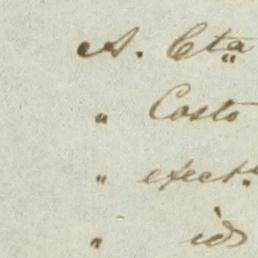 A. Cta
" Costo
" efect.
" id